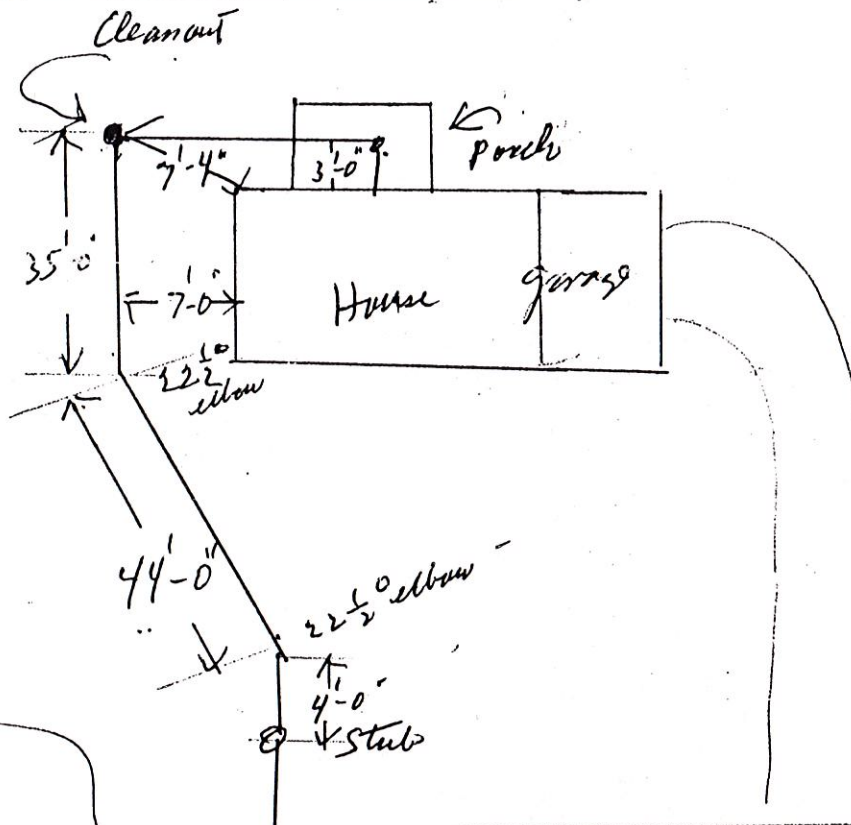 Cleanout
Porch
7'-4"
3'-0"
35'-0"
7'-0"
House
garage
22½°
elbow
44'-0"
22½° elbow
4'-0"
Stub